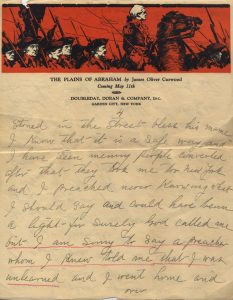 THE PLAINS OF ABRAHAM by James Oliver Curwood
Coming May 11th
DOUBLEDAY, DORAN & COMPANY, INC.
GARDEN CITY, NEW YORK
4
Stoned in the Street bless his name
I know that it is a safe way and
I have seen meny people converted
after that they took me to new york
and I preached never Knowing what
I should say and could have been
a light for surely God called me
but I am Sorry to say a preacher
whom I knew told me that I was
unlearned and I went home and
over